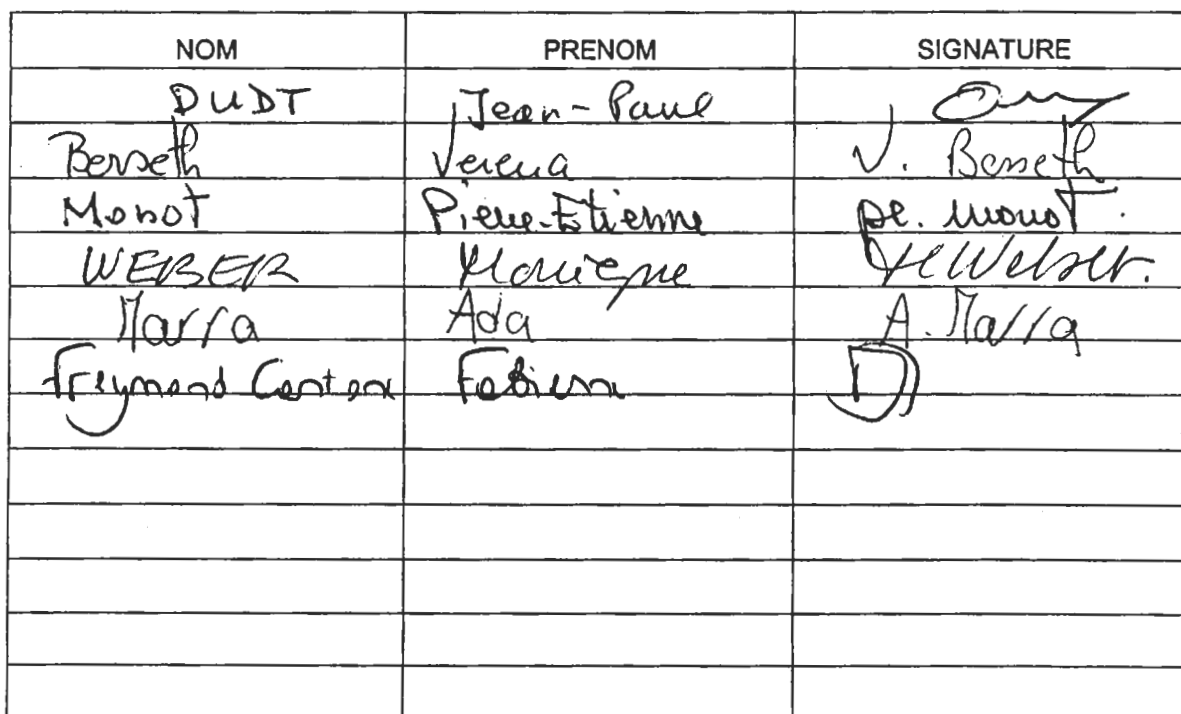 NOM PRENOM SIGNATURE
DUDT Jean-Paul
Berseth Verena V. Berseth
Monot Pierre-Etienne pe. monot.
WEBER Monique MWeber.
Marra Ada A. Marra
Freymond Cantone Fabienne